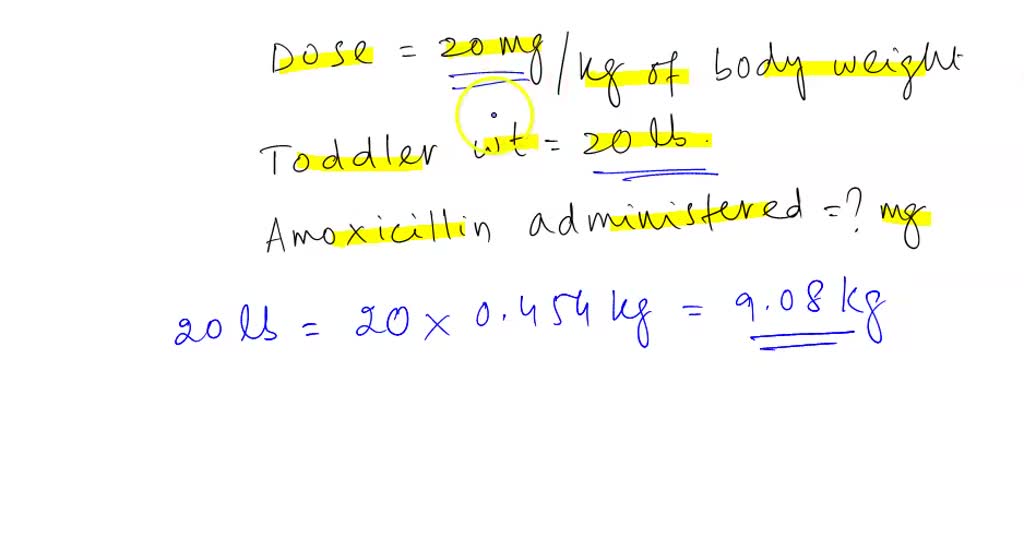 Dose = 20 mg/kg of body weight
Toddler wt = 20 lb.
Amoxicillin administered = ? mg
20 lb = 20 x 0.454 kg = 9.08 kg